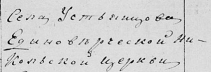 Села Устьницов
Единовѣрческой Ни-
кольской церкви